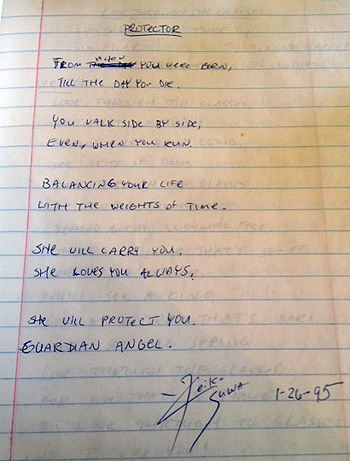 PROTECTOR
FROM WHEN YOU WERE BORN,
TILL THE DAY YOU DIE.
YOU WALK SIDE BY SIDE,
EVEN, WHEN YOU RUN.
BALANCING YOUR LIFE
WITH THE WEIGHTS OF TIME.
SHE WILL CARRY YOU,
SHE LOVES YOU ALWAYS,
SHE WILL PROTECT YOU.
GUARDIAN ANGEL.
Keiko
SUWA 1-26-95